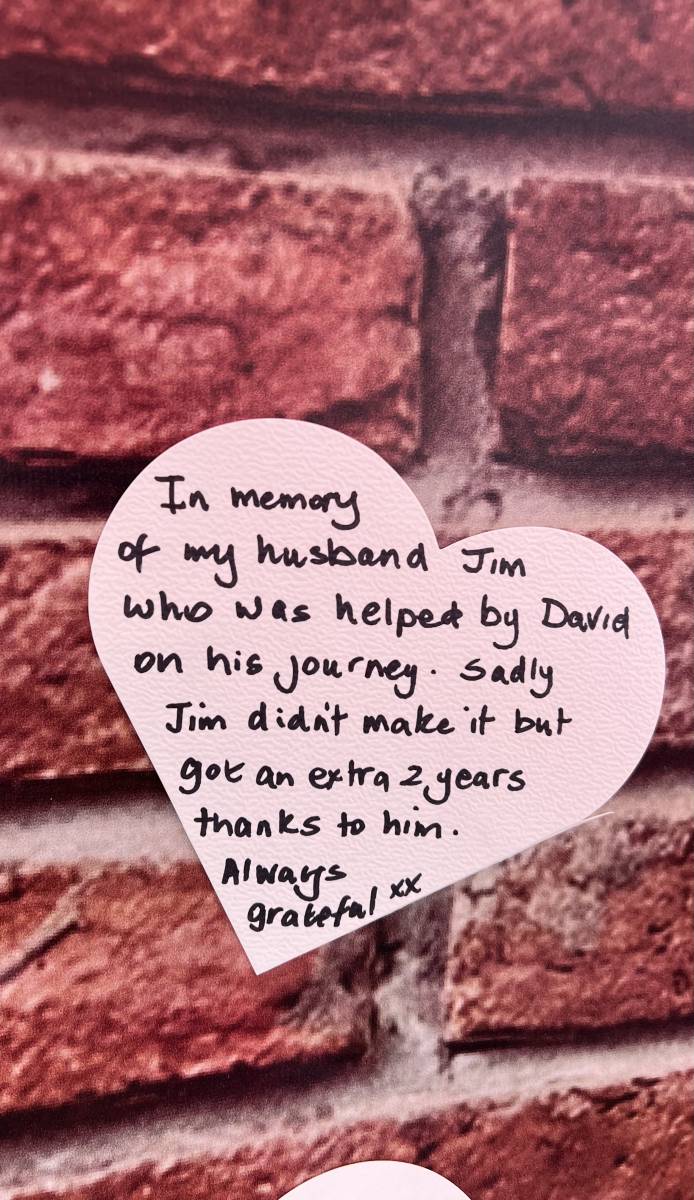 In memory
of my husband Jim
who was helped by David
on his journey. Sadly
Jim didn't make it but
got an extra 2 years
thanks to him.
Always
grateful xx